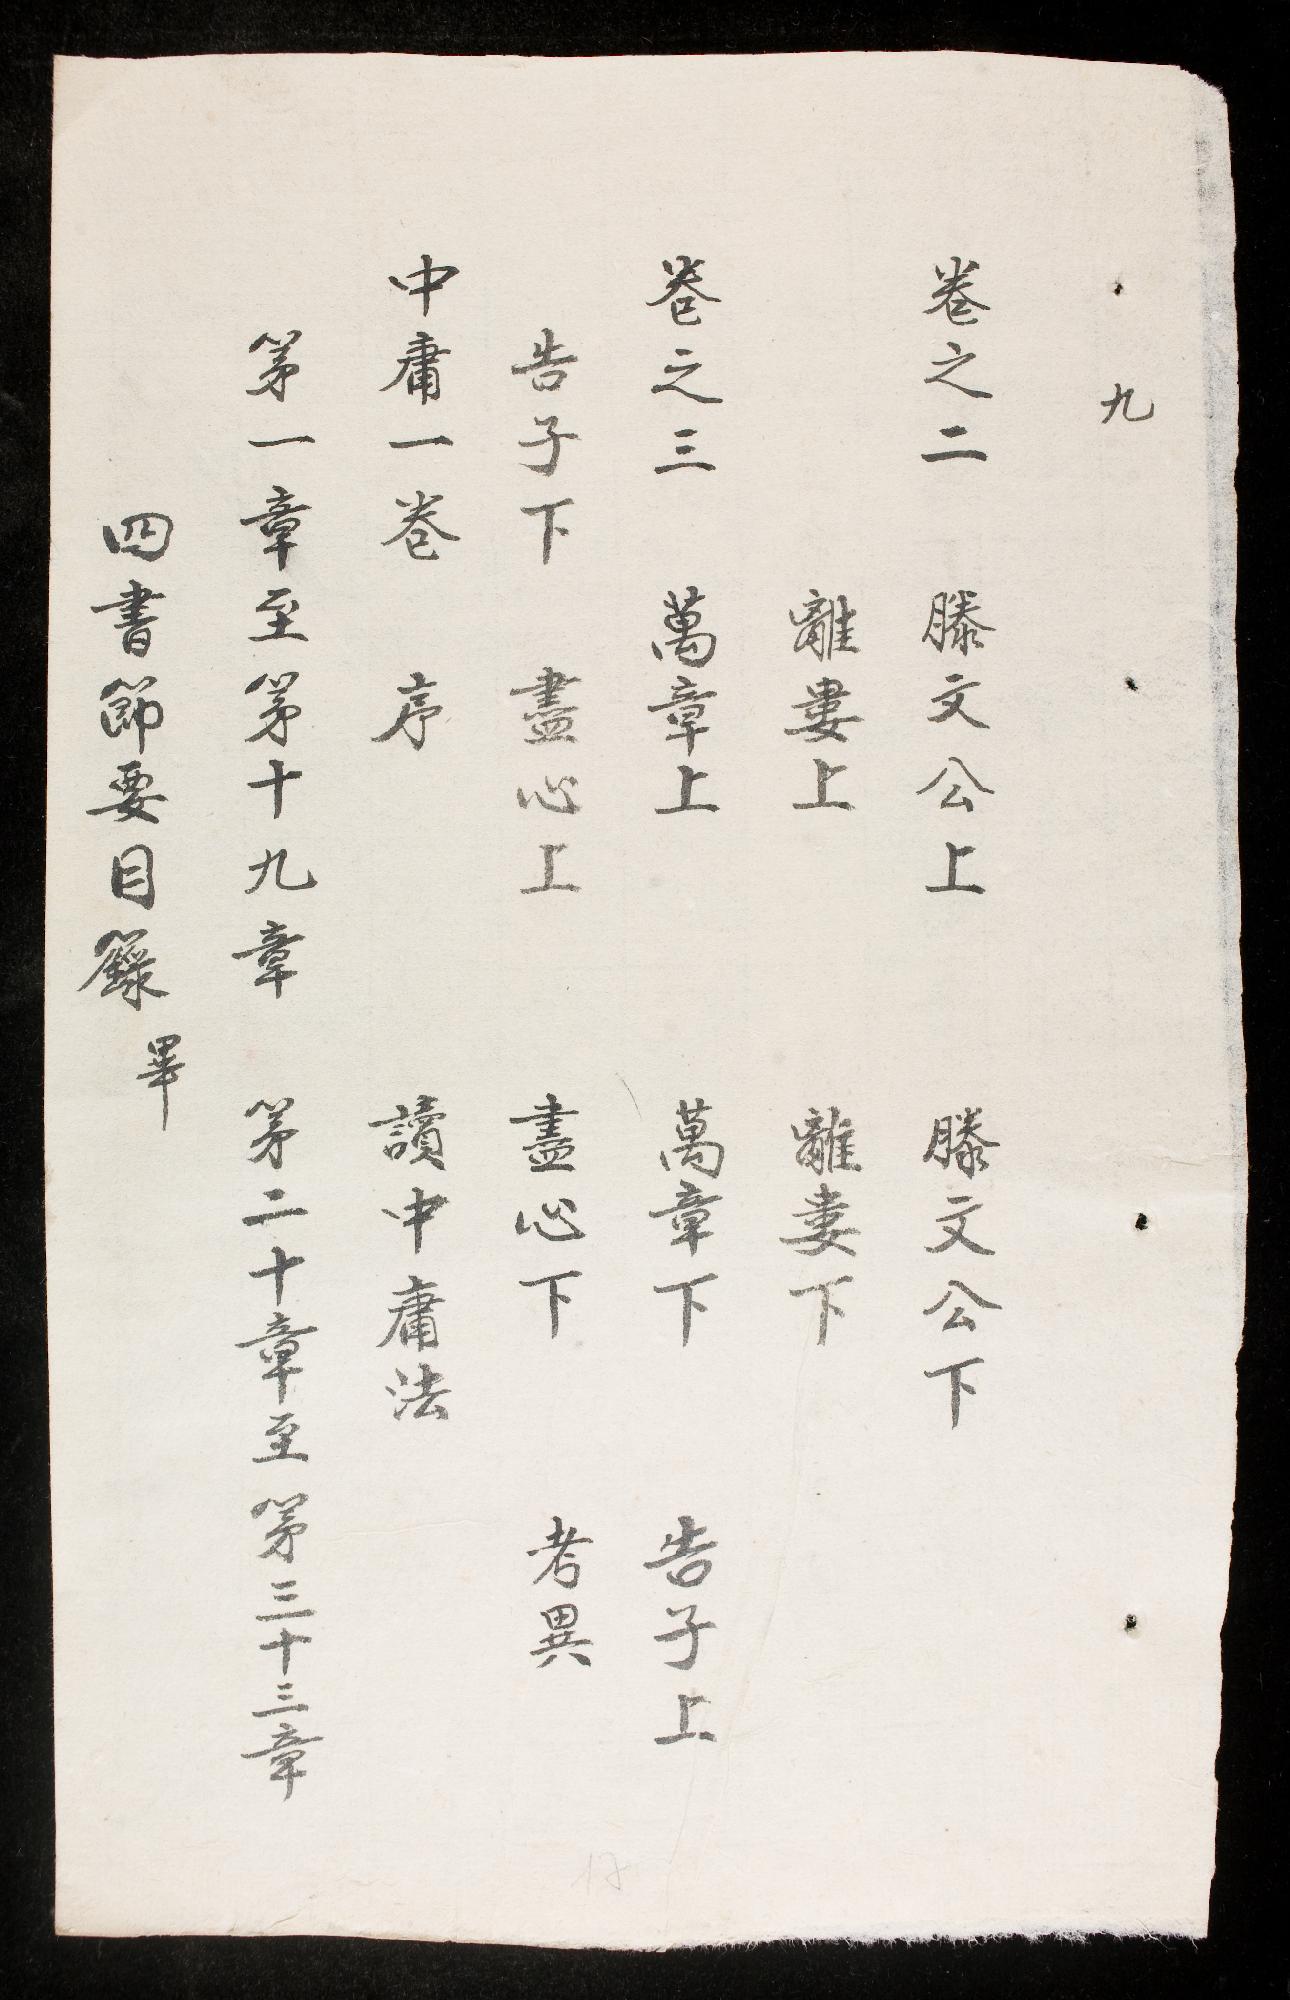 九
卷之二 滕文公上 滕文公下
離婁上 離婁下
卷之三 萬章上 萬章下 告子上
告子下 盡心上 盡心下 考異
中庸一卷 序 讀中庸法
第一章至第十九章 第二十章至第三十三章
四書節要目錄畢
17